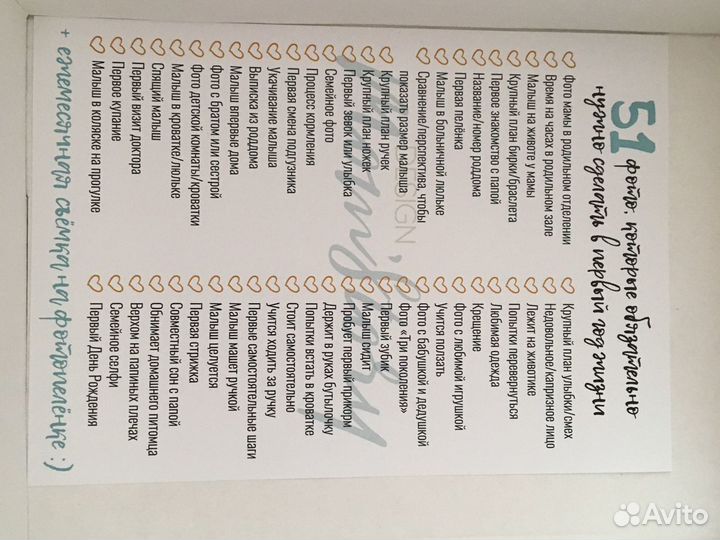 51 фото, которые обязательно
нужно сделать в первый год жизни
Фото мамы в родильном отделении
Время на часах в родильном зале
Малыш на животе у мамы
Крупный план бирки/браслета
Первое знакомство с папой
Название/номер роддома
Первая пелёнка
Малыш в больничной люльке
Сравнение/перспектива, чтобы
показать размер малыша
Крупный план ручек
Крупный план ножек
Первый зевок или улыбка
Семейное фото
Процесс кормления
Первая смена подгузника
Укачивание малыша
Выписка из роддома
Малыш впервые дома
Фото с братом или сестрой
Фото детской комнаты/кроватки
Малыш в кроватке/люльке
Спящий малыш
Первый визит доктора
Первое купание
Малыш в коляске на прогулке
Крупный план улыбки/смех
Недовольное/капризное лицо
Лежит на животике
Попытки перевернуться
Любимая одежда
Крещение
Фото с любимой игрушкой
Учится ползать
Фото с бабушкой и дедушкой
Фото «Три поколения»
Первый зубик
Малыш сидит
Пробует первый прикорм
Держит в руках бутылочку
Попытки встать в кроватке
Стоит самостоятельно
Учится ходить за ручку
Первые самостоятельные шаги
Малыш машет ручкой
Малыш целуется
Первая стрижка
Совместный сон с папой
Обнимает домашнего питомца
Верхом на папиных плечах
Семейное селфи
Первый День Рождения
+ ежемесячная съёмка на фотопелёнке :)
DESIGN
Avito